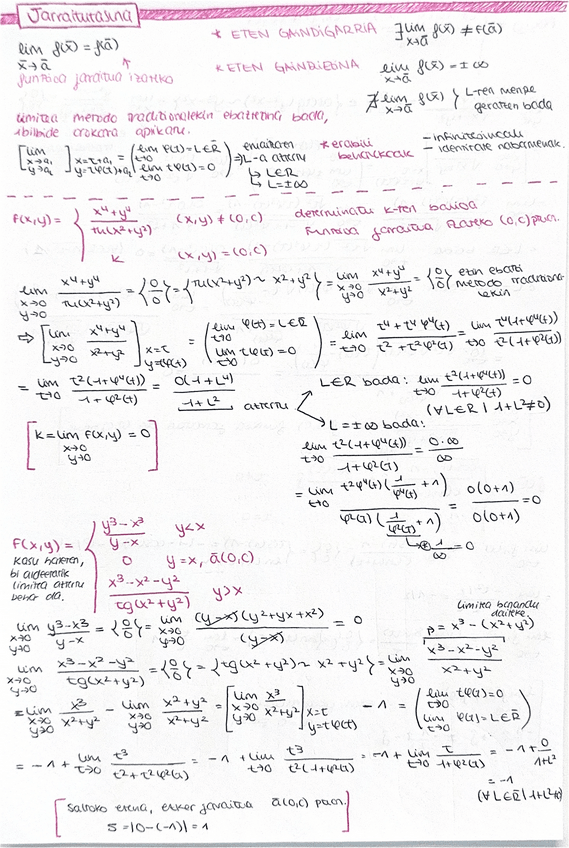 Jarraitutasuna
lim f(x̄) = f(ā)
x̄→ā
funtzioa jarraitua izateko
* ETEN GAINDIGARRIA ∃lim f(x̄) ≠ f(ā)
x̄→ā
* ETEN GAINDIEZINA lim f(x̄) = ±∞
x̄→ā
∄ lim f(x̄) } L-ren menpe
x̄→ā geratzen bada
Limitea metodo tradizionalekin ebatzi ezina bada,
ibilbide orokorra aplikatu.
[lim x→a₁ y→a₂] x=t+a₁ y=tφ(t)+a₂ = (lim t→0 φ(t)=L∈R̄ lim t→0 tφ(t)=0)
emaitzaren
⇒ L-a aztertu
↳ L∈R
↳ L=±∞
* erabili
beharrekoak
– infinitesimoak
– identitate nabarmenak.
f(x,y) = { x⁴+y⁴ / ln(x²+y²) (x,y) ≠ (0,0)
K (x,y) = (0,0)
determinatu K-ren balioa
funtzioa jarraitua izateko (0,0) puntuan.
lim x→0 y→0 x⁴+y⁴ / ln(x²+y²) = {0/0} = {ln(x²+y²) ~ x²+y²} = lim x→0 y→0 x⁴+y⁴ / x²+y² = {0/0} ezin ebatzi
metodo tradizionalekin
⇒ [lim x→0 y→0 x⁴+y⁴ / x²+y²] x=t y=tφ(t) = (lim t→0 φ(t)=L∈R̄ lim t→0 tφ(t)=0) = lim t→0 t⁴+t⁴φ⁴(t) / t²+t²φ²(t) = lim t→0 t⁴(1+φ⁴(t)) / t²(1+φ²(t))
= lim t→0 t²(1+φ⁴(t)) / 1+φ²(t) = 0(1+L⁴) / 1+L² aztertu
L∈R bada: lim t→0 t²(1+φ⁴(t)) / 1+φ²(t) = 0
(∀L∈R | 1+L²≠0)
[K = lim x→0 y→0 f(x,y) = 0]
L=±∞ bada:
lim t→0 t²(1+φ⁴(t)) / 1+φ²(t) = 0·∞ / ∞
= lim t→0 t²φ⁴(t)(1/φ⁴(t) + 1) / φ²(t)(1/φ²(t) + 1) = 0(0+1) / 0(0+1) = 0
1/∞ = 0
f(x,y) = { y³−x³ / y−x y<x
0 y=x, ā(0,0)
x³−x²−y² / tg(x²+y²) y>x
kasu honetan,
bi aldeetatik
limitea aztertu
behar da.
lim x→0 y→0 y³−x³ / y−x = {0/0} = lim x→0 y→0 (y−x)(y²+yx+x²) / (y−x) = 0
limitea banandu
daiteke.
p = x³−(x²+y²)
lim x→0 y→0 x³−x²−y² / tg(x²+y²) = {0/0} = {tg(x²+y²) ~ x²+y²} = lim x→0 y→0 x³−x²−y² / x²+y²
= lim x→0 y→0 x³ / x²+y² − lim x→0 y→0 x²+y² / x²+y² = [lim x→0 y→0 x³ / x²+y²] x=t y=tφ(t) − 1 = (lim t→0 tφ(t)=0 lim t→0 φ(t)=L∈R̄)
= −1 + lim t→0 t³ / t²+t²φ²(t) = −1 + lim t→0 t³ / t²(1+φ²(t)) = −1 + lim t→0 t / 1+φ²(t) = −1 + 0 / 1+L²
= −1
[saltoko etena, ezker jarraitua ā(0,0) puntuan.
S = |0−(−1)| = 1]